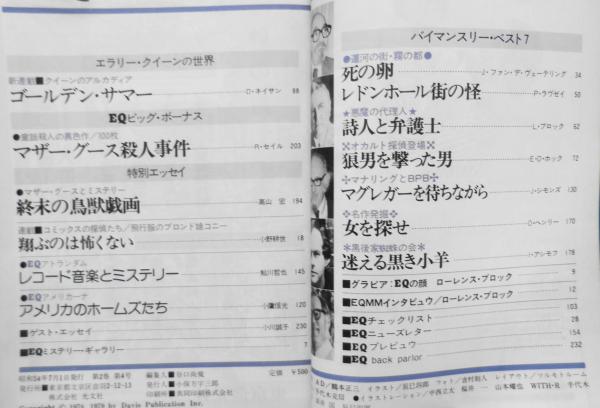 エラリー・クイーンの世界
新連載■クイーンのアルカディア
ゴールデン・サマー D・ネイサン 88
EQビッグ・ボーナス
●童謡殺人の異色作/100枚
マザー・グース殺人事件 R・セイル 203
特別エッセイ
●マザー・グースとミステリー
終末の鳥獣戯画 高山 宏 194
連載■コミックスの探偵たち/飛行服のブロンド娘コニー
翔ぶのは怖くない 小野耕世 18
●EQアトランダム
レコード音楽とミステリー 鮎川哲也 145
●EQアメリカーナ
アメリカのホームズたち 小鷹信光 120
■ゲスト・エッセイ 小川誠子 230
■EQミステリー・ギャラリー 7
昭和54年7月1日発行 第2巻 第4号
発行所■東京都文京区音羽2-12-13
株式会社 光文社
編集人■谷口尚規
発行人■小保方宇三郎
印刷所■共同印刷株式会社
定価 ¥500
Copyright © 1978, 1979 by Davis Publication Inc.
バイマンスリー・ベスト7
●運河の街・霧の都●
死の卵 J・ファン・デ・ヴェーテリング 34
レドンホール街の怪 P・ラヴゼイ 50
★悪魔の代理人★
詩人と弁護士 L・ブロック 62
オカルト探偵登場
狼男を撃った男 E・D・ホック 72
マナリングとBPB
マグレガーを待ちながら J・シモンズ 130
名作発掘
女を探せ O・ヘンリー 170
★黒後家蜘蛛の会★
迷える黒き小羊 I・アシモフ 178
■グラビア:EQの顔 ローレンス・ブロック 9
■EQMMインタビュウ/ローレンス・ブロック 12
■EQチェックリスト 103
■EQニューズレター 28
■EQプレビュウ 154
■EQ back parlor 232
AD/鶴本正三 イラスト/辰巳四郎 フォト/吉村則人 レイアウト/マルモトルーム
●イラストレーション/中西立太 福井一 山本耀也 WITH・R 千代木